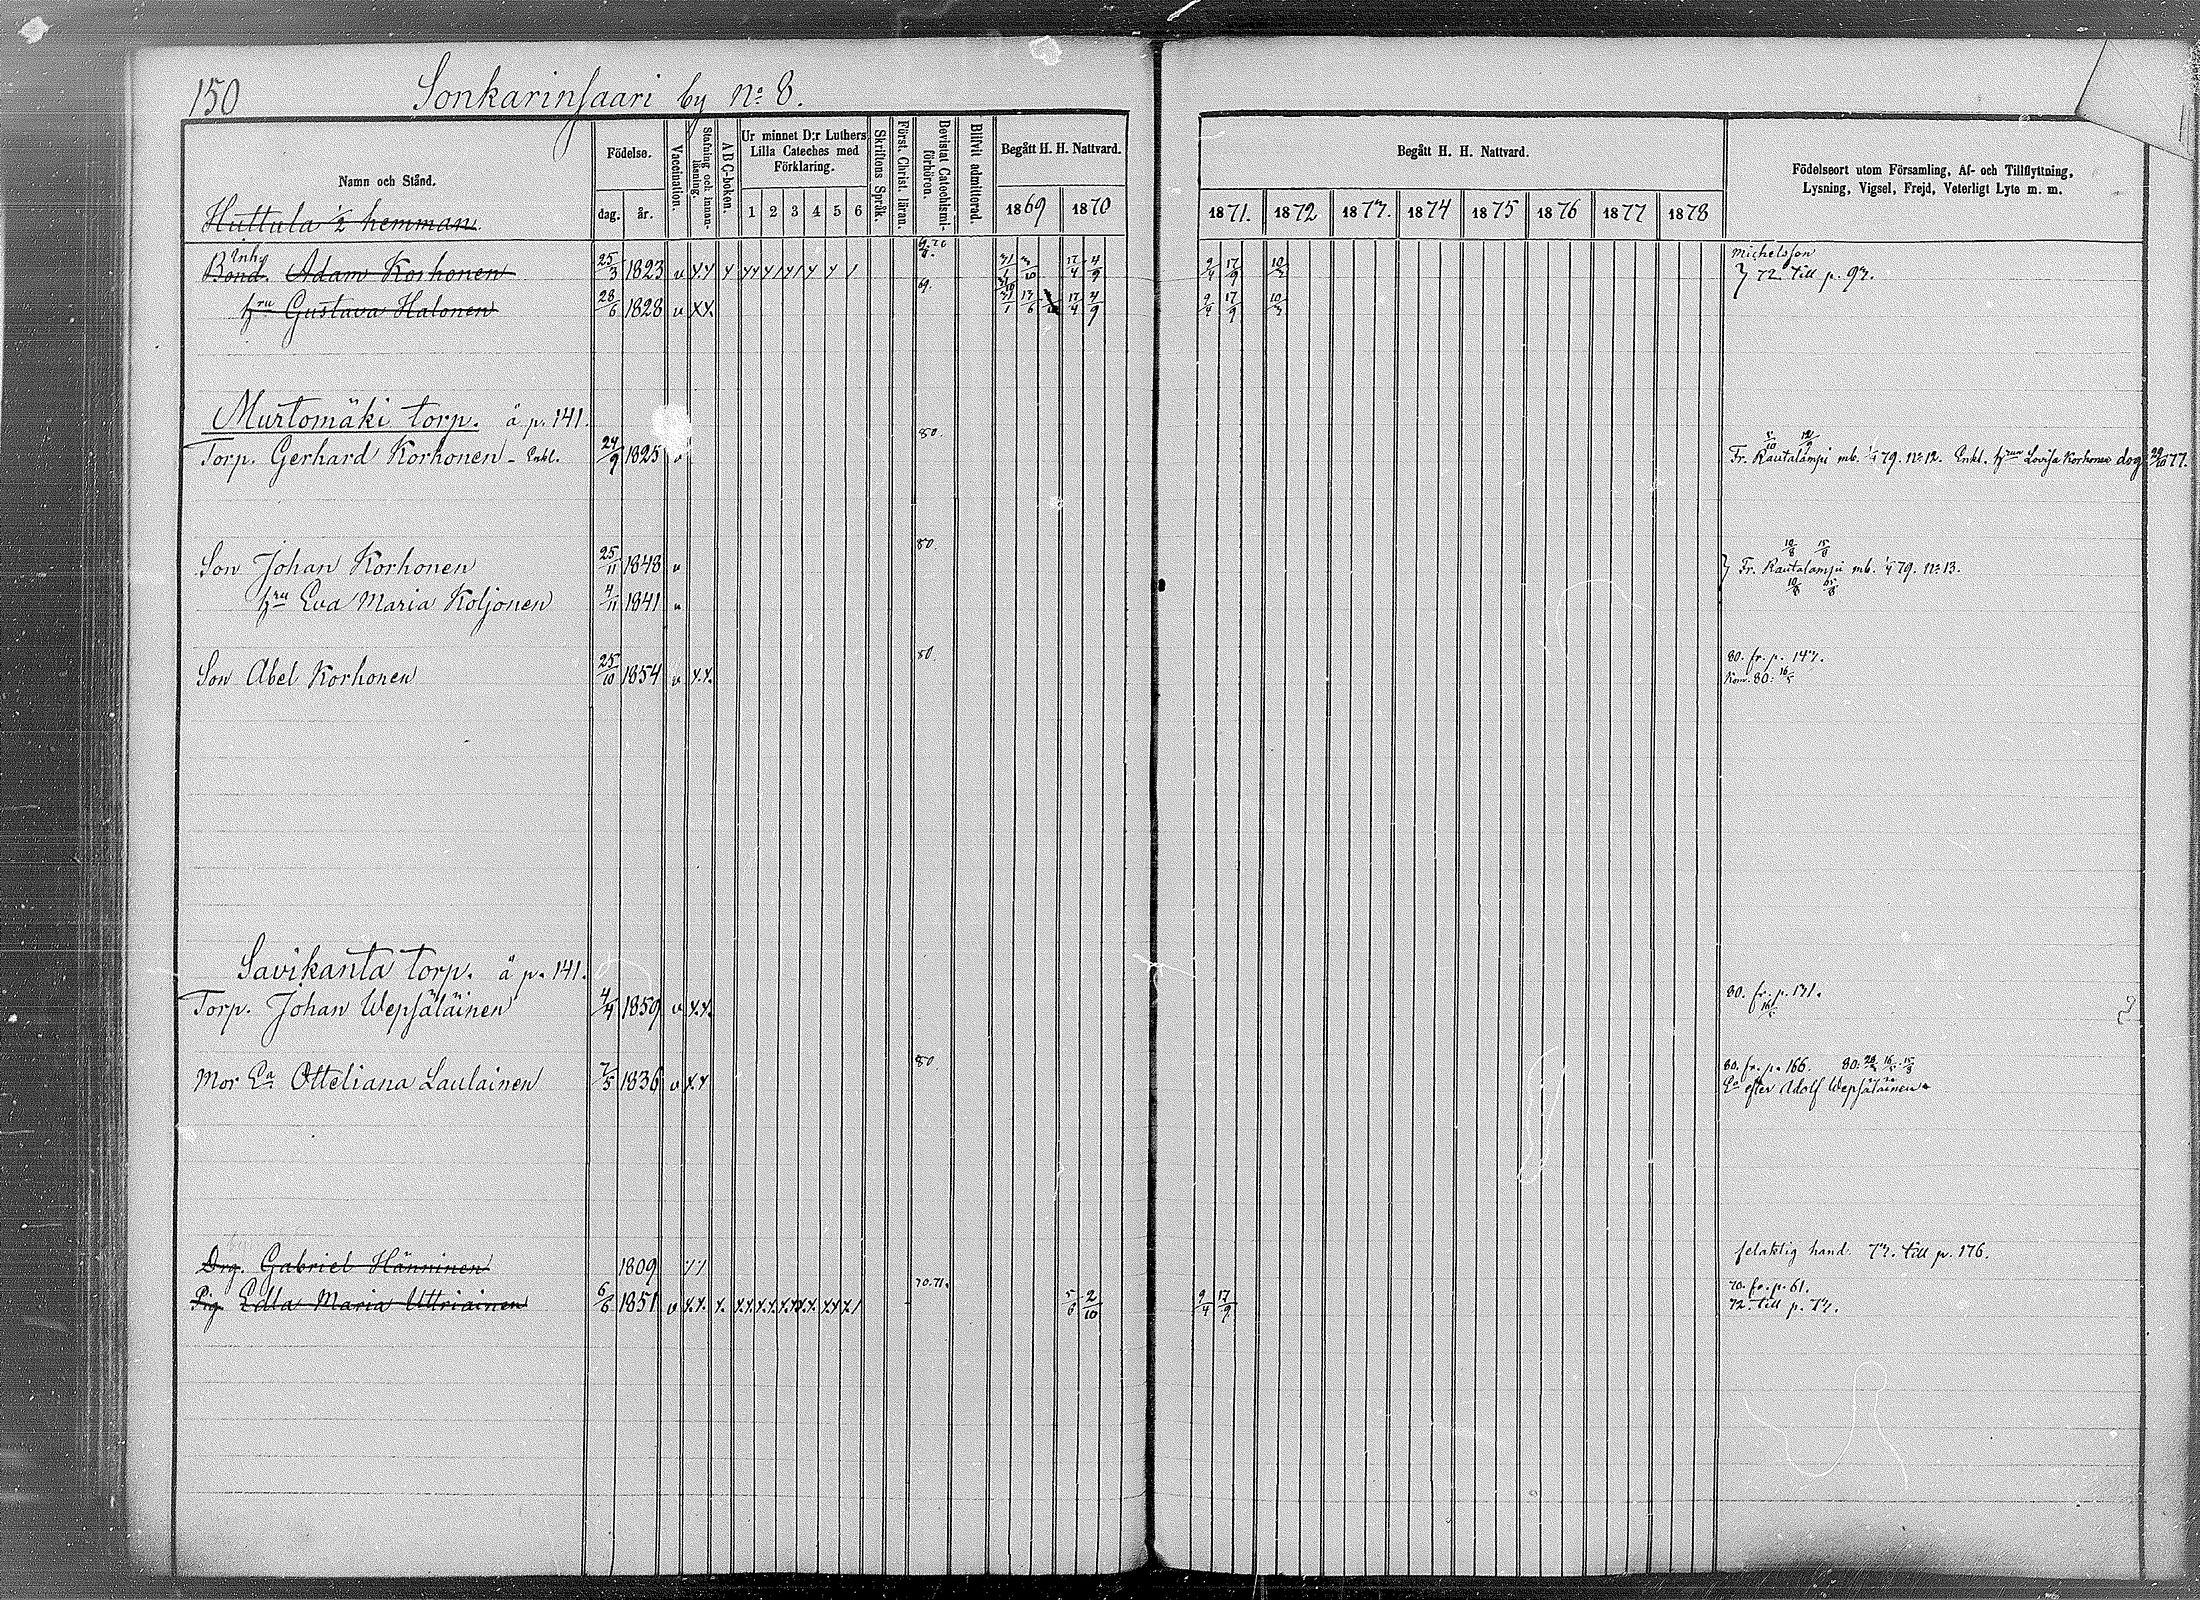 150 Sonkarinsaari by No: 8.
Namn och Stånd.
Födelse.
dag. år.
Vaccination.
Stafning och innanläsning.
A B C-boken.
Ur minnet D:r Luthers Lilla Cateches med Förklaring.
1 2 3 4 5 6
Skriftens Språk.
Först. Christ. läran.
Bevistat Catechismiförhören.
Blifvit admitterad.
Begått H. H. Nattvard.
1869 1870
Begått H. H. Nattvard.
1871. 1872 1873. 1874 1875 1876 1877 1878
Födelseort utom Församling, Af- och Tillflyttning,
Lysning, Vigsel, Frejd, Veterligt Lyte m. m.
Huttula ½ hemman.
Inh.
Bond. Adam Korhonen 25/3 1823 v 31/1 3/10 17/4 4/9 9/4 17/9 10/3 Michelsson } 72. till p. 93.
hru Gustava Halonen 28/6 1828 v XX. 69. 31/1 13/6 17/4 4/9 9/4 17/9 10/3
Murtomäki torp. å p. 141.
Torp. Gerhard Korhonen - Enkl. 24/9 1825 v 80. Fr. Rautalampi mb. 79. No: 12. Enkl. hrun Lovisa Korhonen dog 29/10 77.
Son Johan Korhonen 25/11 1848 v 80. } Fr. Rautalampi mb. 79. No: 13.
hru Eva Maria Koljonen 4/11 1841 v
Son Abel Korhonen 25/10 1854 v x.x. 80. 80. fr. p. 143.
Kom. 80: 16/5
Savikanta torp. å p. 141.
Torp. Johan Wepsäläinen 4/4 1859 v x.x. 80. fr. p. 131.
16/5
Mor Ea. Otteliana Laulainen 7/5 1836 v x.x 80 80. fr. p. 166. 80:
Ea efter Adolf Wepsäläinen.
Drg. Gabriel Hänninen 1809 felaktig hand. 73. till p. 176.
Pig. Edla Maria Uttriainen 6/6 1851 v x.x. x. 70.71. 5/6 2/10 9/4 17/9 70. fr. p. 61.
72. till p. 73.